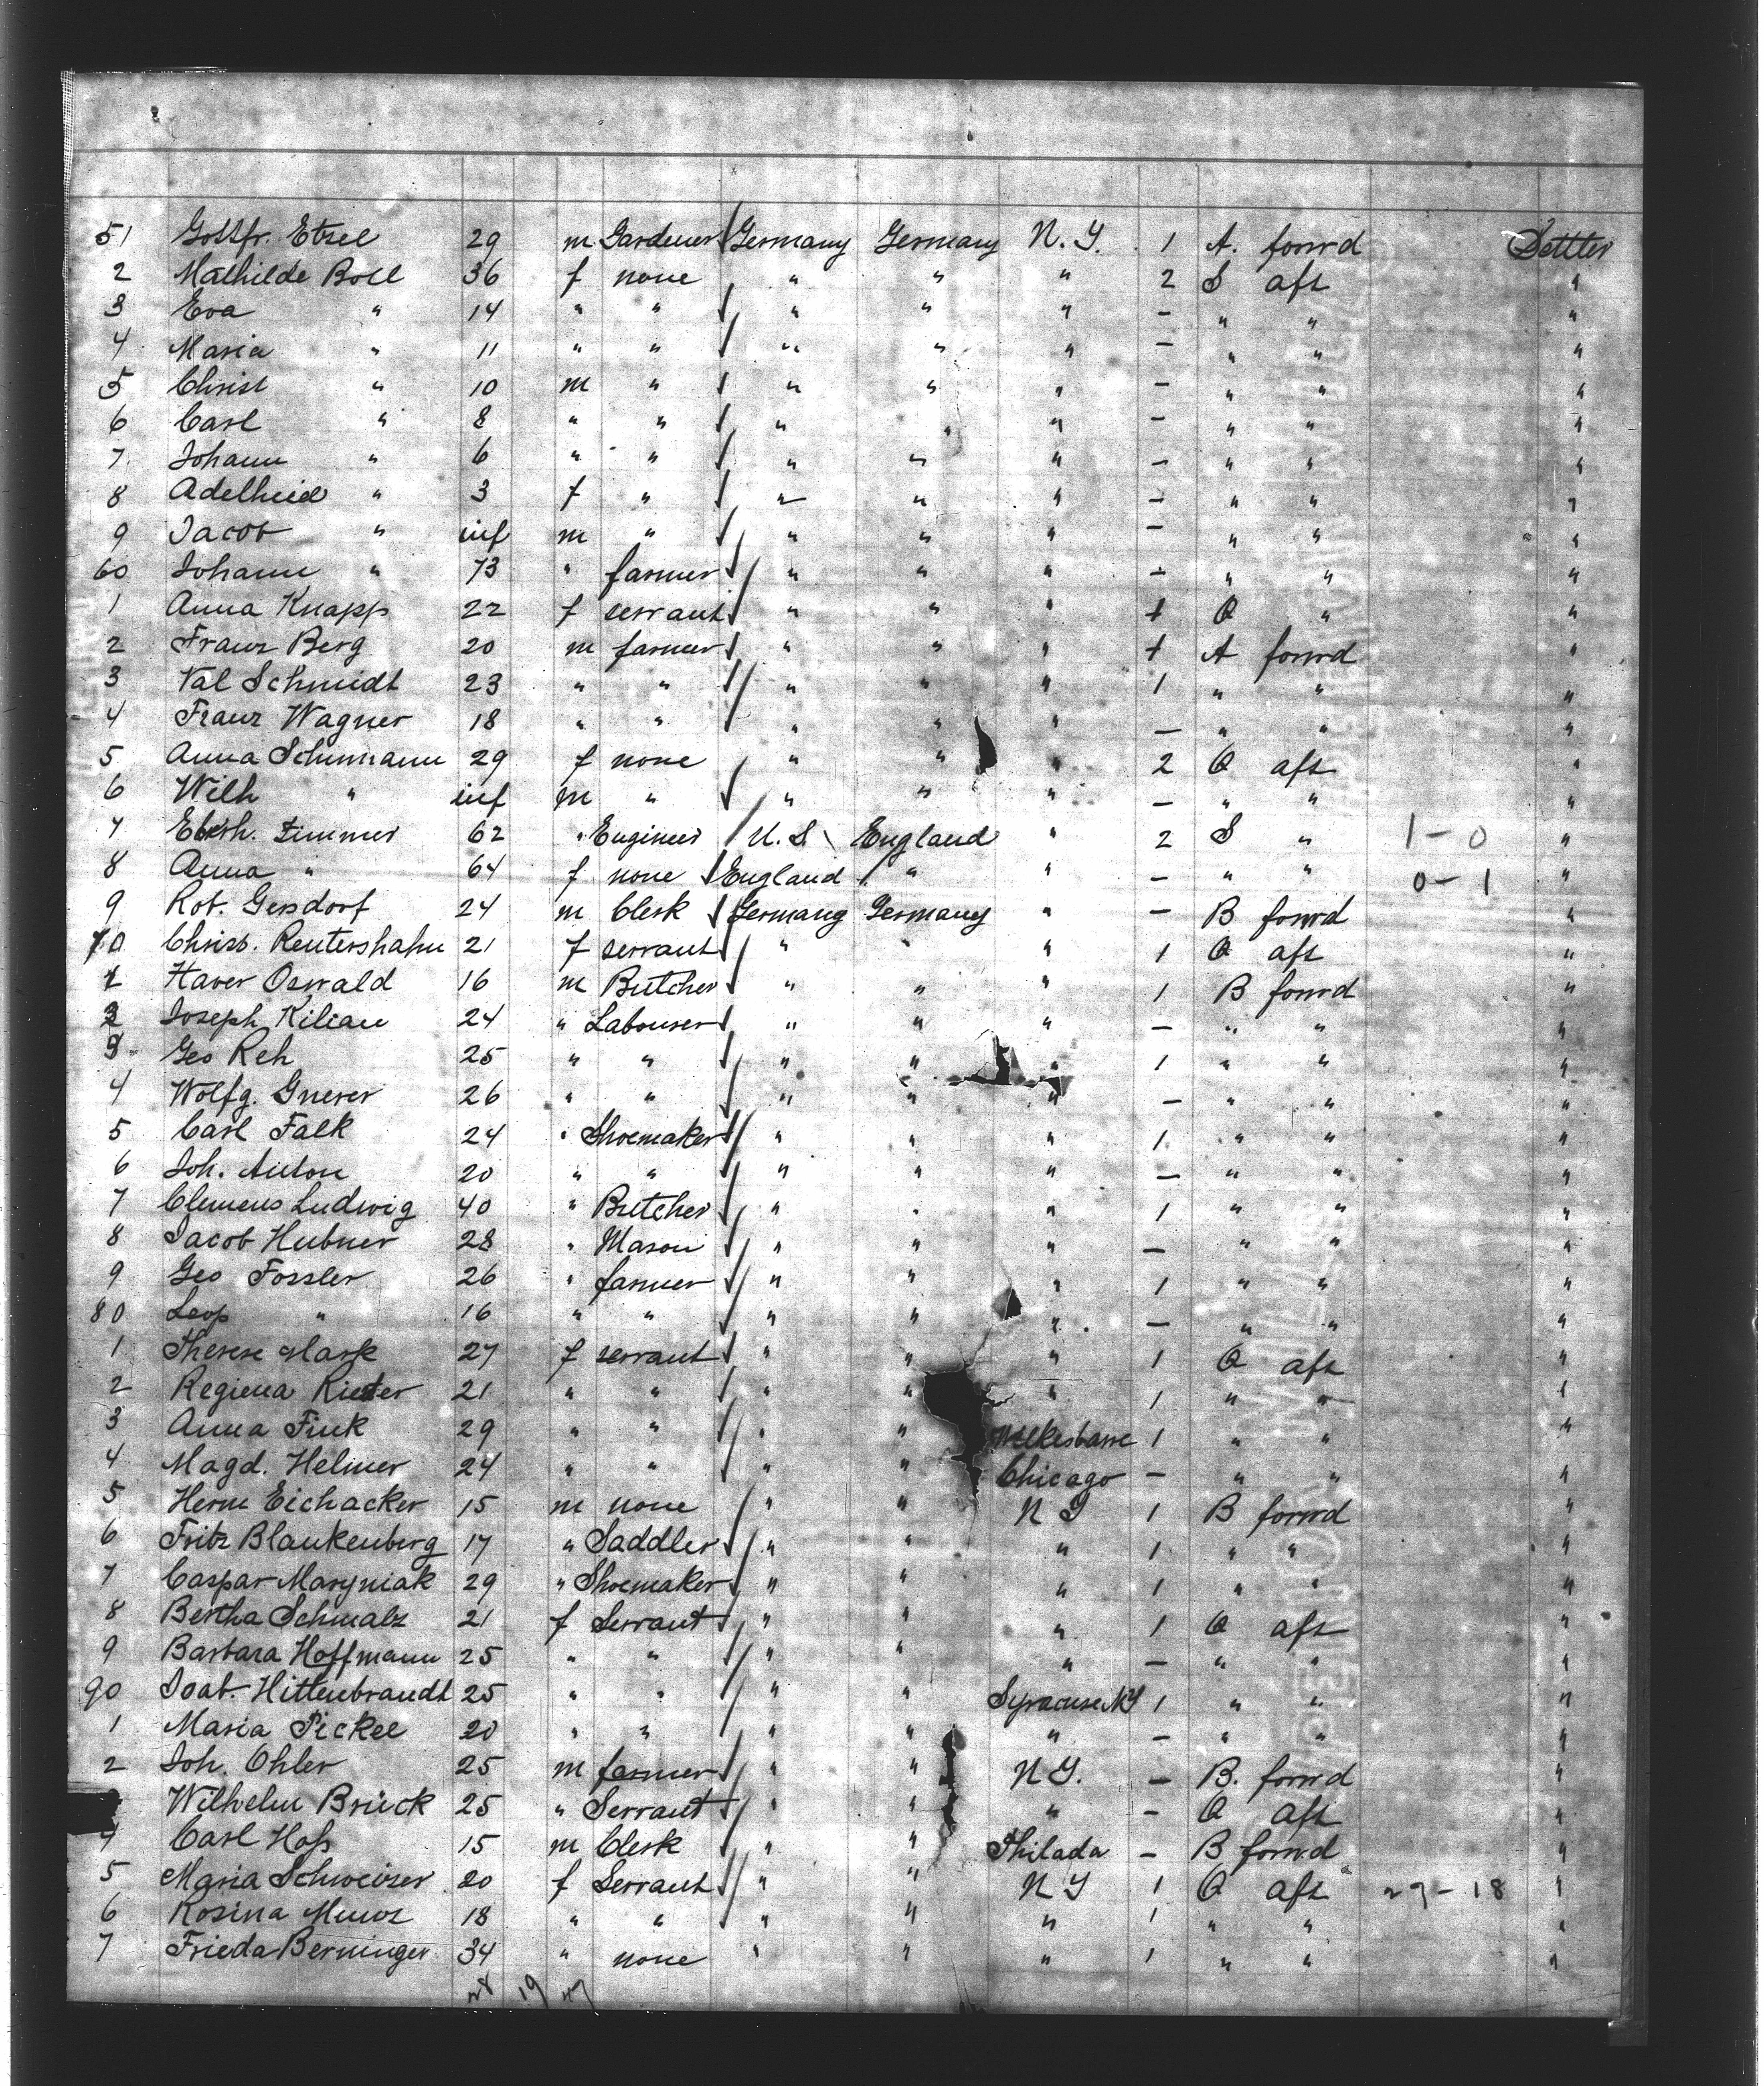 51 Gottfr. Etzel 29 m Gardener Germany Germany N.Y. 1 A. forwd Settler
2 Mathilde Boll 36 f none " " " 2 S aft "
3 Eva " 14 " " " " " - " " "
4 Maria " 11 " " " " " - " " "
5 Christ " 10 m " " " " - " " "
6 Carl " 8 " " " " " - " " "
7. Johann " 6 " " " " " - " " "
8 Adelheid " 3 f " " " " - " " "
9 Jacob " inf m " " " " - " " "
60 Johann " 73 " farmer " " " - " " "
1 Anna Knapp 22 f servant " " " 1 Q " "
2 Franz Berg 20 m farmer " " " 1 A forwd "
3 Val Schmidt 23 " " " " " 1 " " "
4 Franz Wagner 18 " " " " " - " " "
5 Anna Schumann 29 f none " " " 2 Q aft "
6 Wilh " inf m " " " " - " " "
7 Eberh. Zimmer 62 " Engineer U.S. England " 2 S " 1-0 "
8 Anna " 64 f none England " " - " " 0-1 "
9 Rob. Gersdorf 24 m Clerk Germany Germany " - B forwd "
70 Christ. Reutershahn 21 f servant " " " 1 Q aft "
1 Xaver Oswald 16 m Butcher " " " 1 B forwd "
2 Joseph Kilian 24 " Labourer " " " - " " "
3 Geo Reh 25 " " " " " 1 " " "
4 Wolfg. Gnerer 26 " " " " " - " " "
5 Carl Falk 24 " Shoemaker " " " 1 " " "
6 Joh. Anton 20 " " " " " - " " "
7 Clemens Ludwig 40 " Butcher " " " 1 " " "
8 Jacob Hubner 28 " Mason " " " - " " "
9 Geo Fossler 26 " farmer " " " 1 " " "
80 Leop " 16 " " " " " - " " "
1 Therese Mark 27 f servant " " " 1 Q aft "
2 Regiena Rieter 21 " " " " " 1 " " "
3 Anna Fink 29 " " " " Wilkesbarre 1 " " "
4 Magd. Helmer 24 " " " " Chicago - " " "
5 Herm Eichacker 15 m none " " N Y 1 B forwd "
6 Fritz Blankenberg 17 " Saddler " " " 1 " " "
7 Caspar Maryniak 29 " Shoemaker " " " 1 " " "
8 Bertha Schmalz 21 f Servant " " " 1 Q aft "
9 Barbara Hoffmann 25 " " " " " - " " "
90 Isab. Hittenbrandt 25 " " " " Syracuse NY 1 " " "
1 Maria Pickel 20 " " " " " - " " "
2 Joh. Ohler 25 m farmer " " N Y. - B. forwd "
Wilhelm Brück 25 " Servant " " " - Q aft "
4 Carl Hoß 15 m Clerk " " Philada - B forwd "
5 Maria Schweizer 20 f Servant " " N Y 1 Q aft 29-18 "
6 Rosina Munz 18 " " " " " 1 " " "
7 Frieda Berninger 34 " none " " " 1 " " "
28 19 47